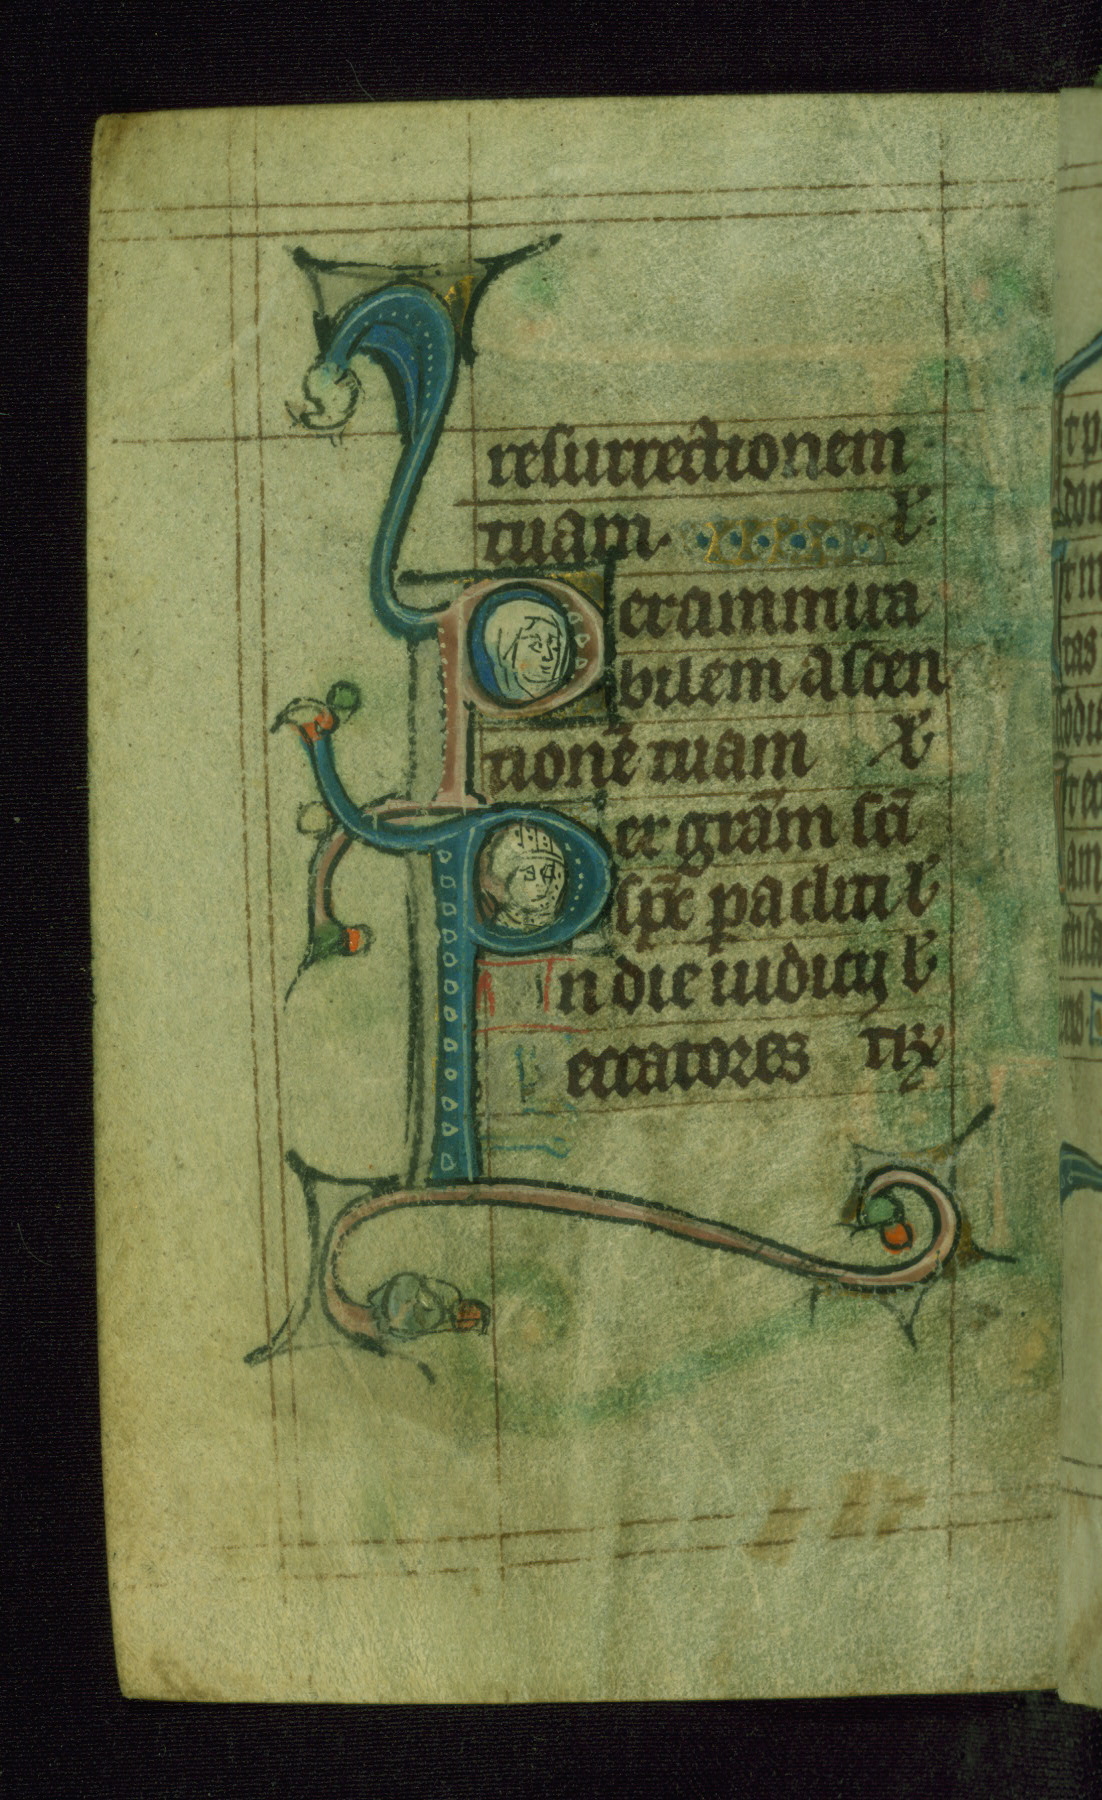 resurrectionem
tuam. l'.
Per ammira
bilem ascen
tionē tuam l'
Per grām scī
spc paclitī l'
In die iudicij l'
Peccatores te r'